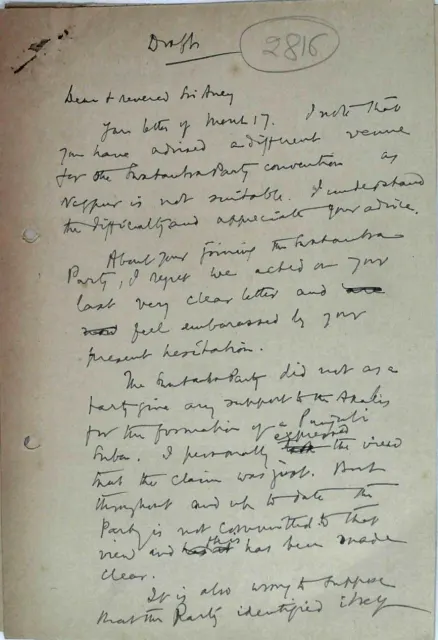 Draft
2816
Dear & revered Sri Aney
Your letter of March 17. I note that
you have advised a different venue
for the Swatantra Party convention as
Nagpur is not suitable. I understand
the difficulty and appreciate your advice.
About your joining the Swatantra
Party, I regret we acted on your
last very clear letter and
feel embarassed by your
present hesitation.
The Swatantra Party did not as a
party give any support to the Akalis
for the formation of a Punjabi
Suba. I personally expressed the view
that the claim was just. But
throughout and up to date the
Party is not committed to that
view and this has been made
clear.
It is also wrong to suppose
that the Party identified itself